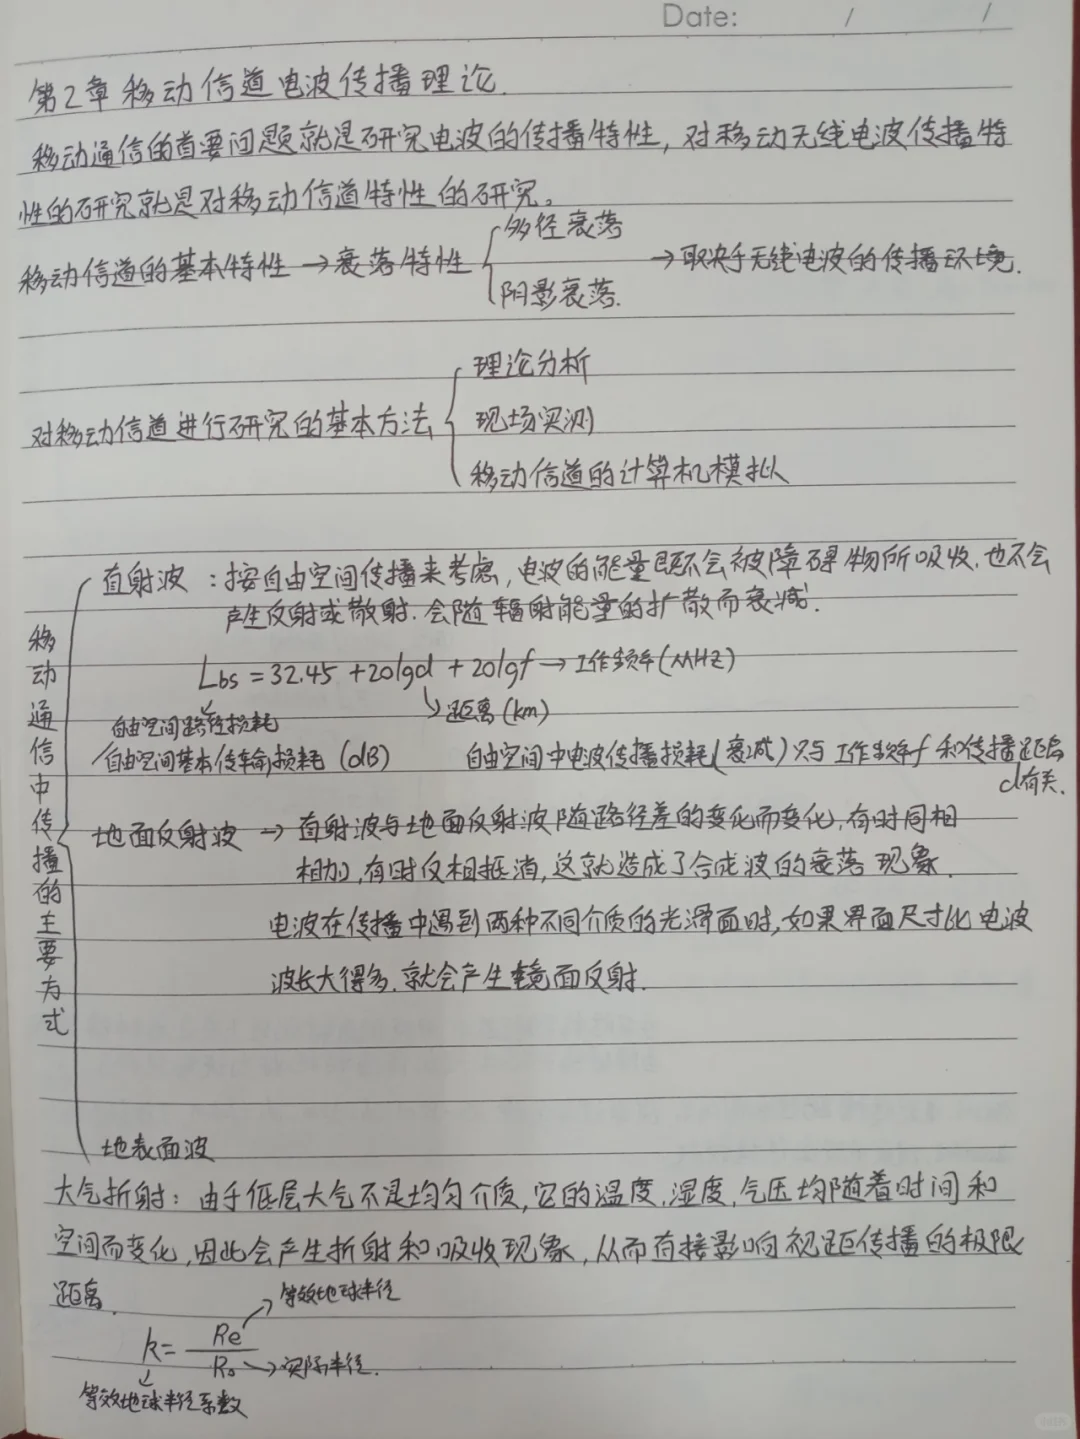 Date: / /
第2章 移动信道电波传播理论.
移动通信的首要问题就是研究电波的传播特性,对移动无线电波传播特
性的研究就是对移动信道特性的研究。
移动信道的基本特性 → 衰落特性 { 多径衰落 阴影衰落. → 取决于无线电波的传播环境.
对移动信道进行研究的基本方法 {
理论分析
现场实测
移动信道的计算机模拟
移动通信中传播的主要方式
直射波:按自由空间传播来考虑,电波的能量既不会被障碍物所吸收,也不会
产生反射或散射.会随辐射能量的扩散而衰减.
Lbs = 32.45 + 20lgd + 20lgf → 工作频率(MHZ)
自由空间路径损耗
距离(km)
/自由空间基本传输损耗 (dB)
自由空间中电波传播损耗(衰减)只与工作频率f和传播距离
d有关.
地面反射波 → 直射波与地面反射波随路径差的变化而变化,有时同相
相加,有时反相抵消,这就造成了合成波的衰落现象.
电波在传播中遇到两种不同介质的光滑面时,如果界面尺寸比电波
波长大得多.就会产生镜面反射.
地表面波
大气折射:由于低层大气不是均匀介质,它的温度,湿度,气压均随着时间和
空间而变化,因此会产生折射和吸收现象,从而直接影响视距传播的极限
距离.
等效地球半径
k= Re / R₀ → 实际半径.
等效地球半径系数